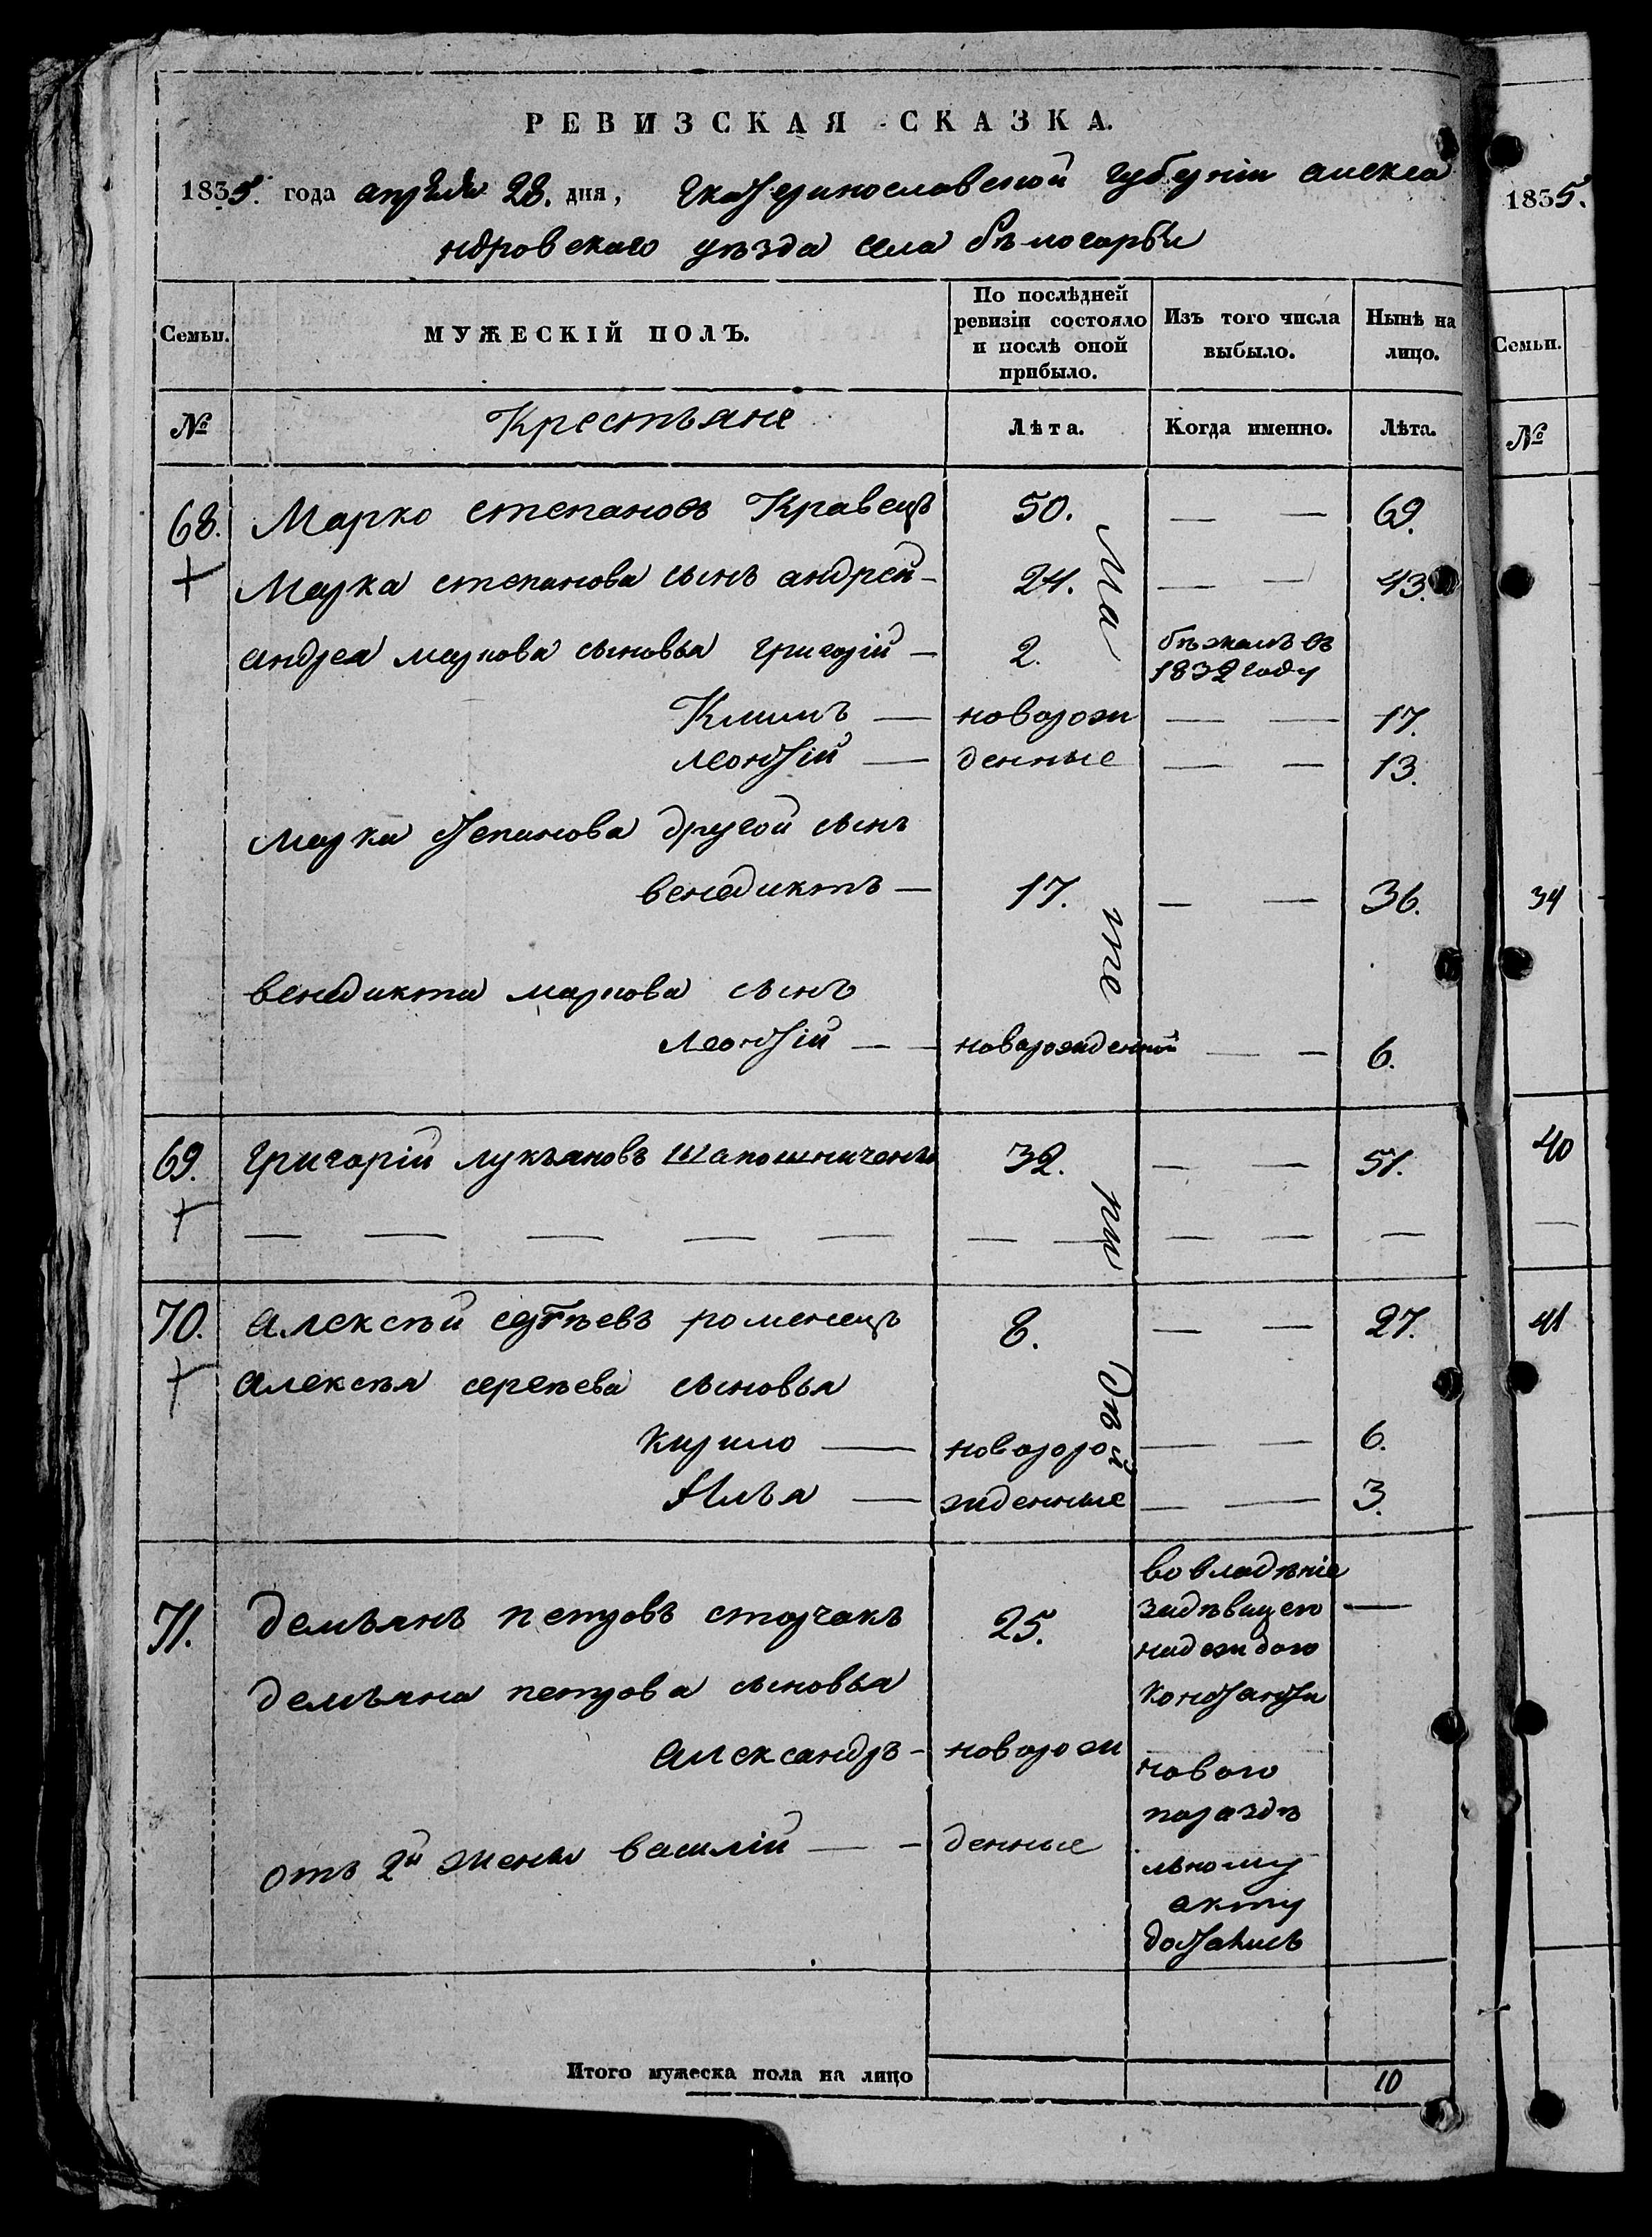 РЕВИЗСКАЯ СКАЗКА.
1835. года апреля 28. дня, Екатеринославской губернии алекса
ндровского уѣзда села бѣлогорьи
Семьи. МУЖЕСКІЙ ПОЛЪ. По послѣдней ревизіи состояло и послѣ оной прибыло. Изъ того числа выбыло. Нынѣ на лицо.
№ Крестьяне Лѣта. Когда именно. Лѣта.
68. Марко степановъ Кравецъ 50. — — 69.
Марка степанова сынъ андрей — 24. — — 43.
андрея маркова сыновья григорій — 2. бѣжалъ въ 1832 году
Климъ — новорож — — 17.
леонтій — денные — — 13.
марка степанова другой сынъ
венедиктъ — 17. — — 36.
венедикта маркова сынъ
леонтій — — новорожденной — — 6.
69. григорій лукьяновъ Шапошниченко 32. — — 51.
— — — — — — — — — —
70. алексѣй сергѣевъ роменецъ 8. — — 27.
алексѣя сергѣева сыновья
кирило — новоро — — 6.
Илья — жденные — — 3.
71. демьянъ петровъ сторчакъ 25. во владѣніе —
задѣвицею
надеждою
демьяна петрова сыновья константи
александръ — новорож нового
поразде
отъ 2й жены василій — — денные льному
акту
достались
Итого мужеска пола на лицо 10
1835.
Семьи.
№
34
40
—
41